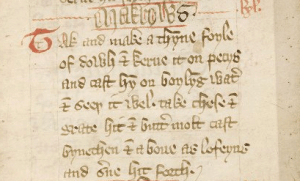 macrows
Tak and make a thyne foyle
of dowh & kerue it on pecys
and cast hȳ on boylyg wat̕
& seeþ it wel. take chese &
grate hit & butt̕ molt cast
bynethen & a boue as loseyns
and s̕ue hit forth.